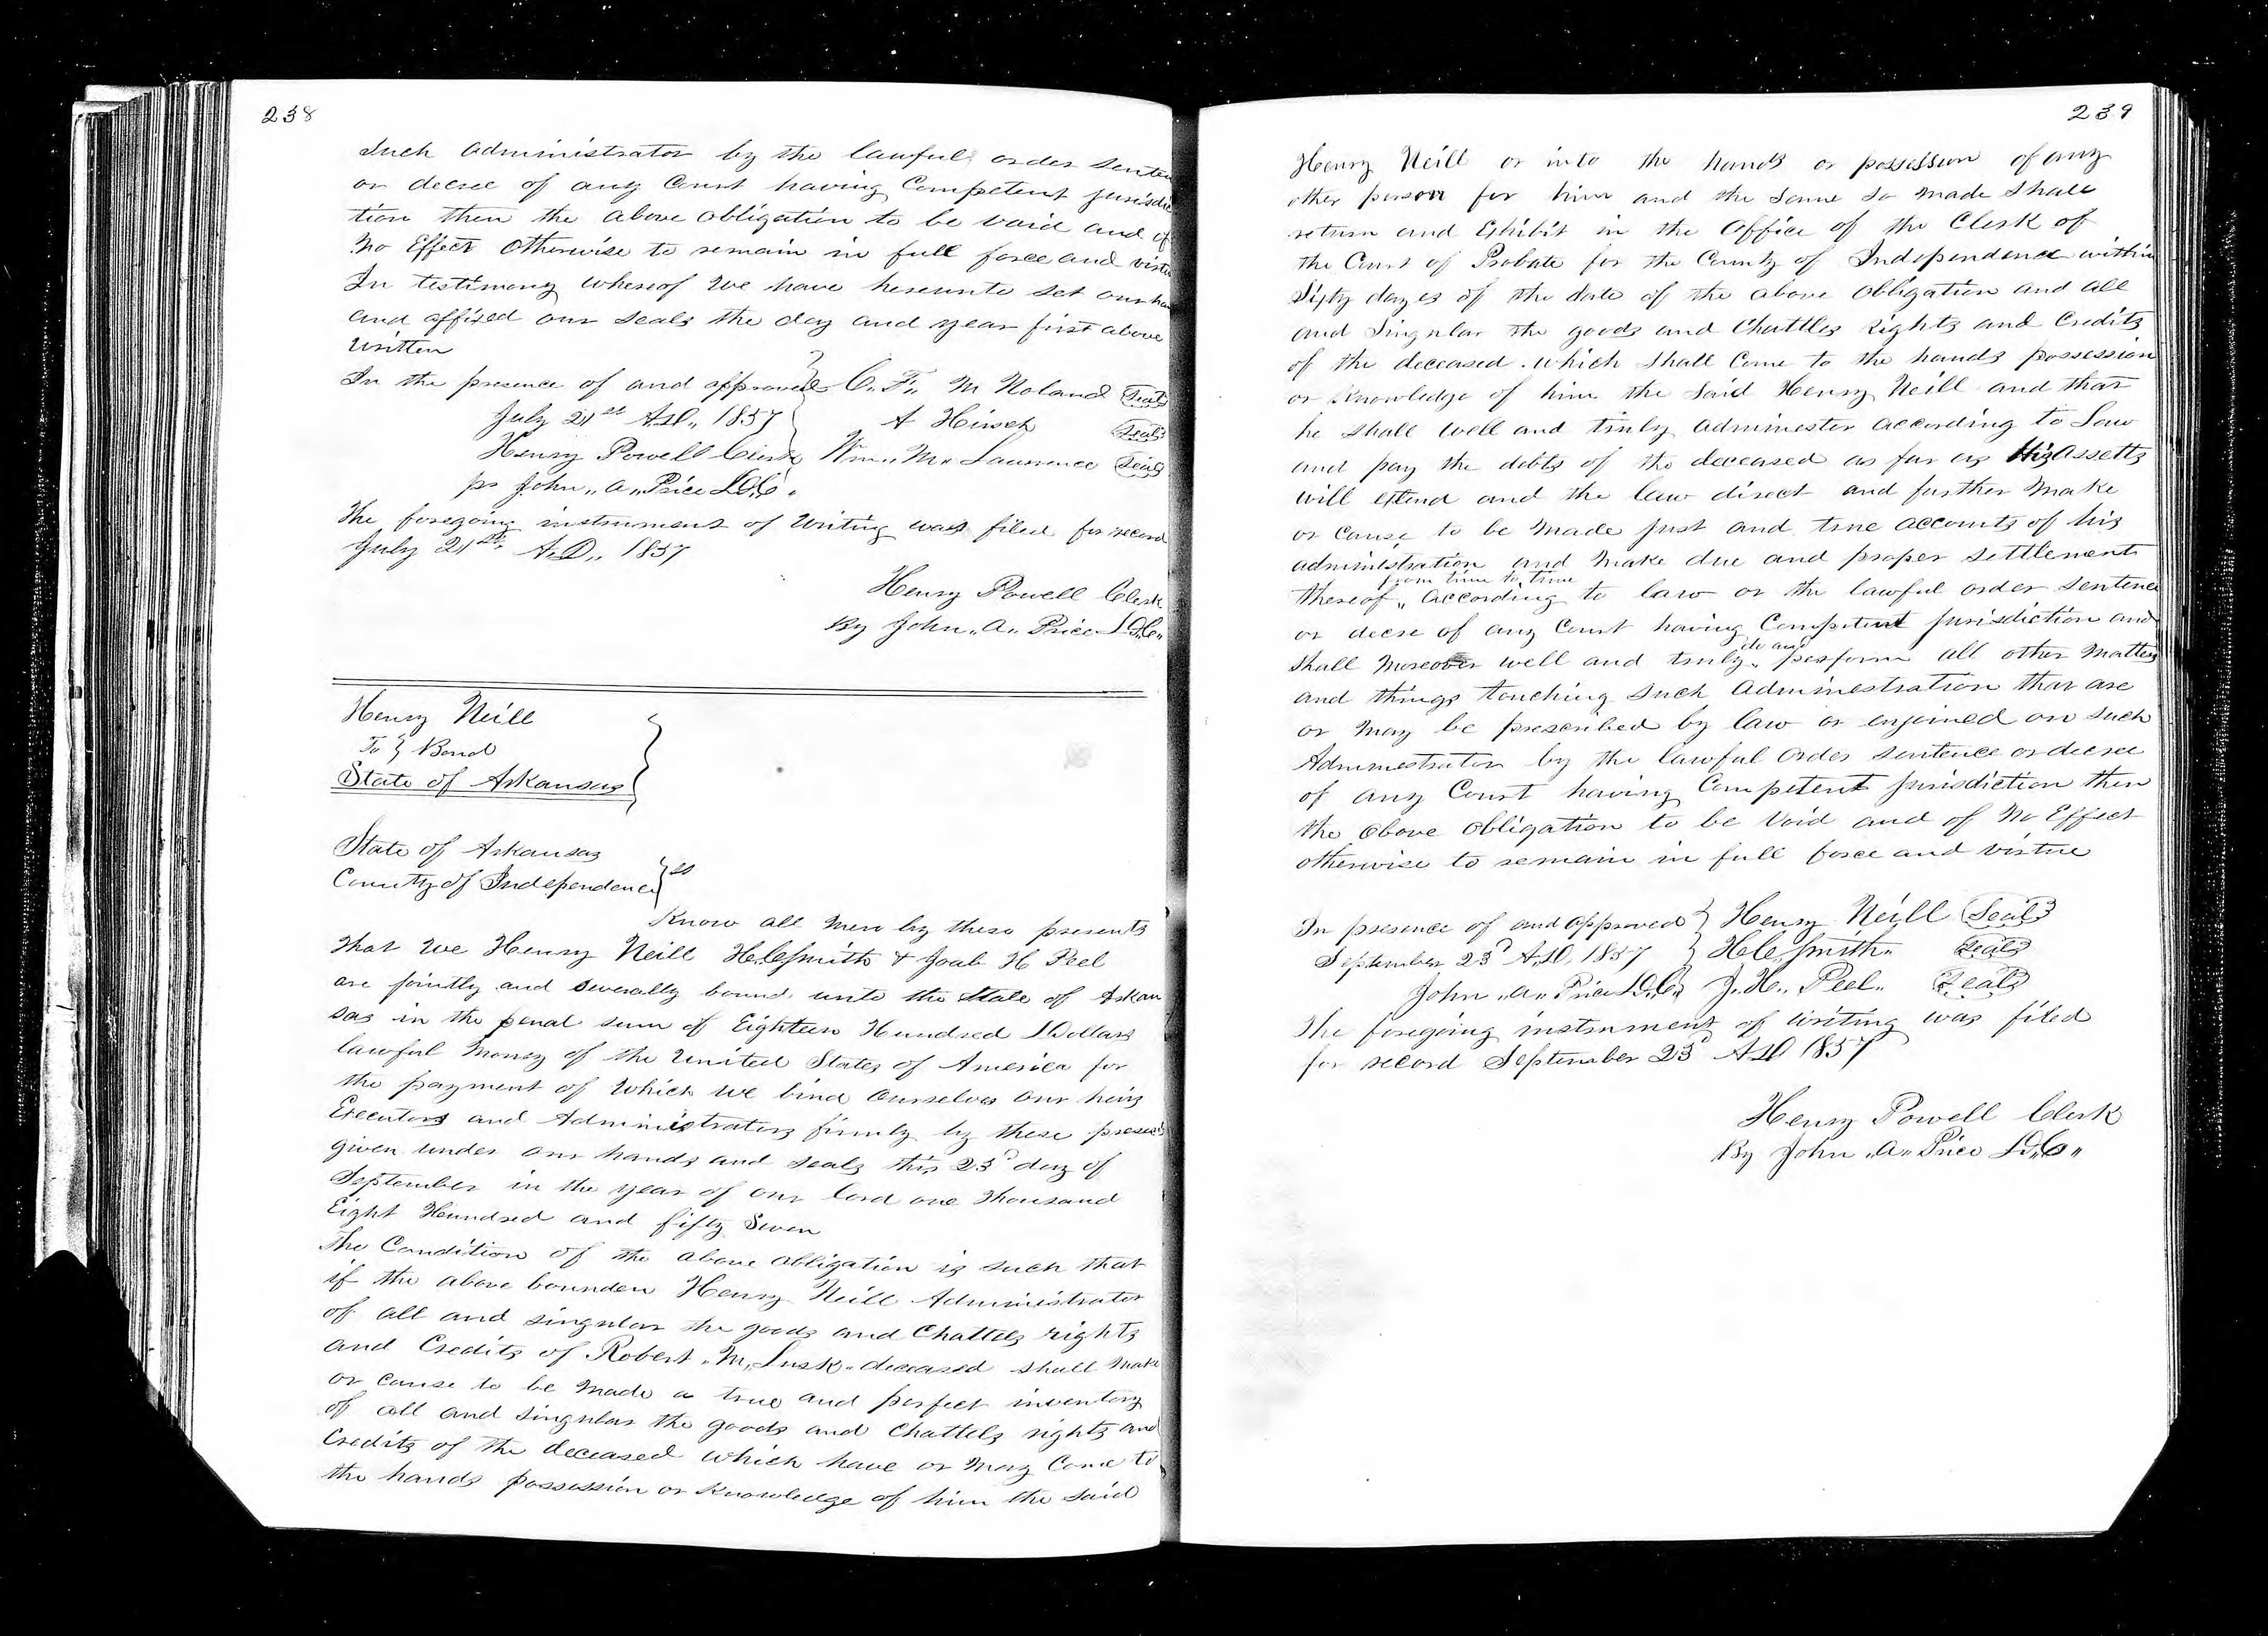 238
Such administrator by the lawful order senten
or decree of any Court having Competent jurisdic
tion then the above obligation to be void and of
No Effect Otherwise to remain in full force and virtu
In testimony whereof We have hereunto set our han
and affixed our seals the day and year first above
Written
In the presence of and approved } C. F. M Noland Seal
July 21st A.D. 1857 } A Hirsch Seal
Henry Powell Clerk Wm. M. Lawrence Seal
pr John A. Price D.C.
The foregoing instrument of Writing was filed for record
July 21st A.D. 1857
Henry Powell Clerk
By John A. Price D.C.
Henry Neill
To } Bond
State of Arkansas
State of Arkansas
County of Independence } ss
Know all Men by these presents
that We Henry Neill H.C. Smith & Joab H Peel
are jointly and Severally bound unto the State of Arkan
sas in the penal sum of Eighteen Hundred Dollars
lawful Money of the United States of America for
the payment of Which We bind Ourselves our heirs
Executors and Administrators firmly by these presents
given under our hands and seals this 23d day of
September in the year of our lord one thousand
Eight Hundred and fifty Seven
The Condition of the above obligation is such that
if the above bounden Henry Neill Administrator
of all and singular the goods and Chattels rights
and Credits of Robert M. Lusk deceased shall Make
or cause to be Made a true and perfect inventory
of all and singular the goods and Chattels rights and
Credits of the deceased which have or May Come to
the hands possession or Knowledge of him the said
239
Henry Neill or into the hands or possession of any
other person for him and the same so made shall
return and Exhibit in the Office of the Clerk of
the Court of Probate for the County of Independence within
Sixty days of the date of the above Obligation and all
and Singular the goods and Chattles rights and Credits
of the deceased which shall Come to the hands possession
or Knowledge of him the said Henry Neill and that
he shall well and truly administer according to Law
and pay the debts of the deceased as far as His assetts
will extend and the law direct and further Make
or cause to be Made just and true accounts of his
administration and Make due and proper settlements
from time to time
thereof according to law or the lawful order sentence
or decre of any Court having Competent jurisdiction and
do and
shall Moreover well and truly perform all other Matters
and things touching Such Administration that are
or May be prescribed by law or enjoined on such
Administrator by the lawful Order sentence or decree
of any Court having Competent jurisdiction then
the above obligation to be Void and of No Effect
otherwise to remain in full force and virtue
In presence of and approved } Henry Neill Seal
September 23d A.D. 1857 } H.C. Smith Seal
John A. Price D.C. } J. H. Peel Seal
The foregoing instrument of writing was filed
for record September 23d A.D 1857
Henry Powell Clerk
By John A. Price D.C.